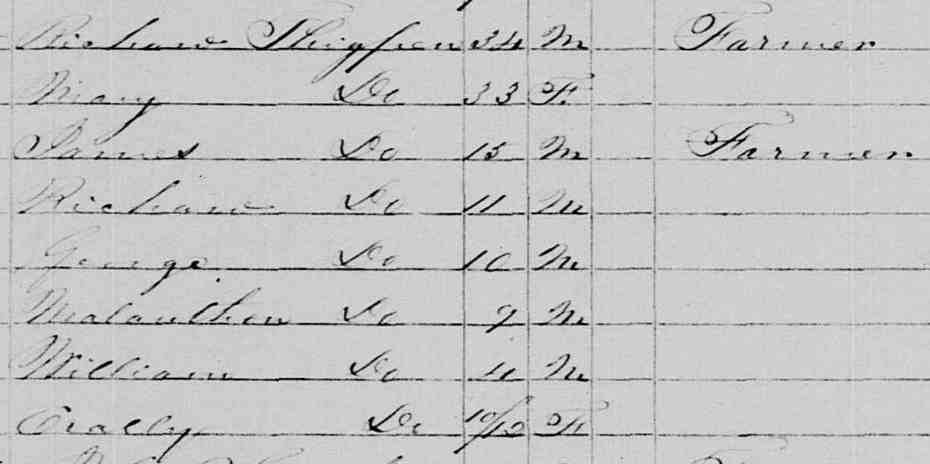 Richard Thigpen 34 M Farmer
Mary Do 33 F
James Do 15 M Farmer
Richard Do 11 M
George Do 10 M
Malanthon Do 9 M
William Do 4 M
Do 10/12 F